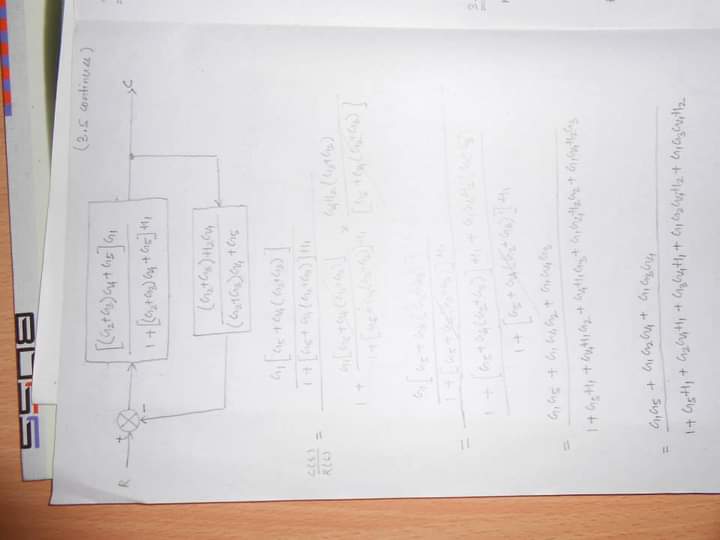 (3.5 continues)
R + - C
[(G2+G3)G4+G5]G1
1+[(G2+G3)G4+G5]H1
(G2+G3)H2G4
(G2+G3)G4+G5
G1[G5+G4(G2+G3)]
1+[G5+G4(G2+G3)]H1
C(s)
R(s) =
1 + G1[G5+G4(G2+G3)] × G4H2(G2+G3)
1+[G5+G4(G2+G3)]H1 [G5+G4(G2+G3)]
G1[G5+G4(G2+G3)]
1+[G5+G4(G2+G3)]H1
=
1 + [G5+G4(G2+G3)]H1 + G1G4H2(G2+G3)
1+[G5+G4(G2+G3)]H1
= G1G5 + G1G4G2 + G1G4G3
1+G5H1 + G4H1G2 + G4H1G3 + G1G4H2G2 + G1G4H2G3
= G1G5 + G1G2G4 + G1G3G4
1+G5H1 + G2G4H1 + G3G4H1 + G1G2G4H2 + G1G3G4H2